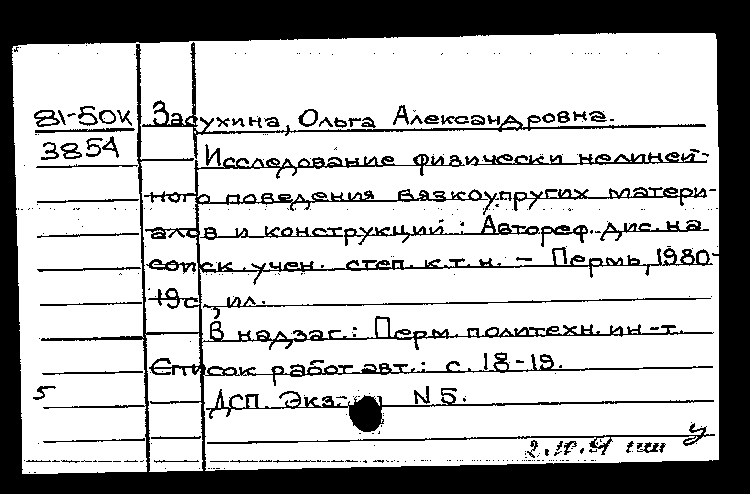 81-50к Засухина, Ольга Александровна.
3854 Исследование физически нелиней-
ного поведения вязкоупругих матери-
алов и конструкций: Автореф. дис. на
соиск. учен. степ. к.т.н. - Пермь, 1980-
19с., ил.
В надзаг.: Перм. политехн. ин-т.
Список работ авт.: с. 18-19.
5 ДСП. Экз. N5.
у